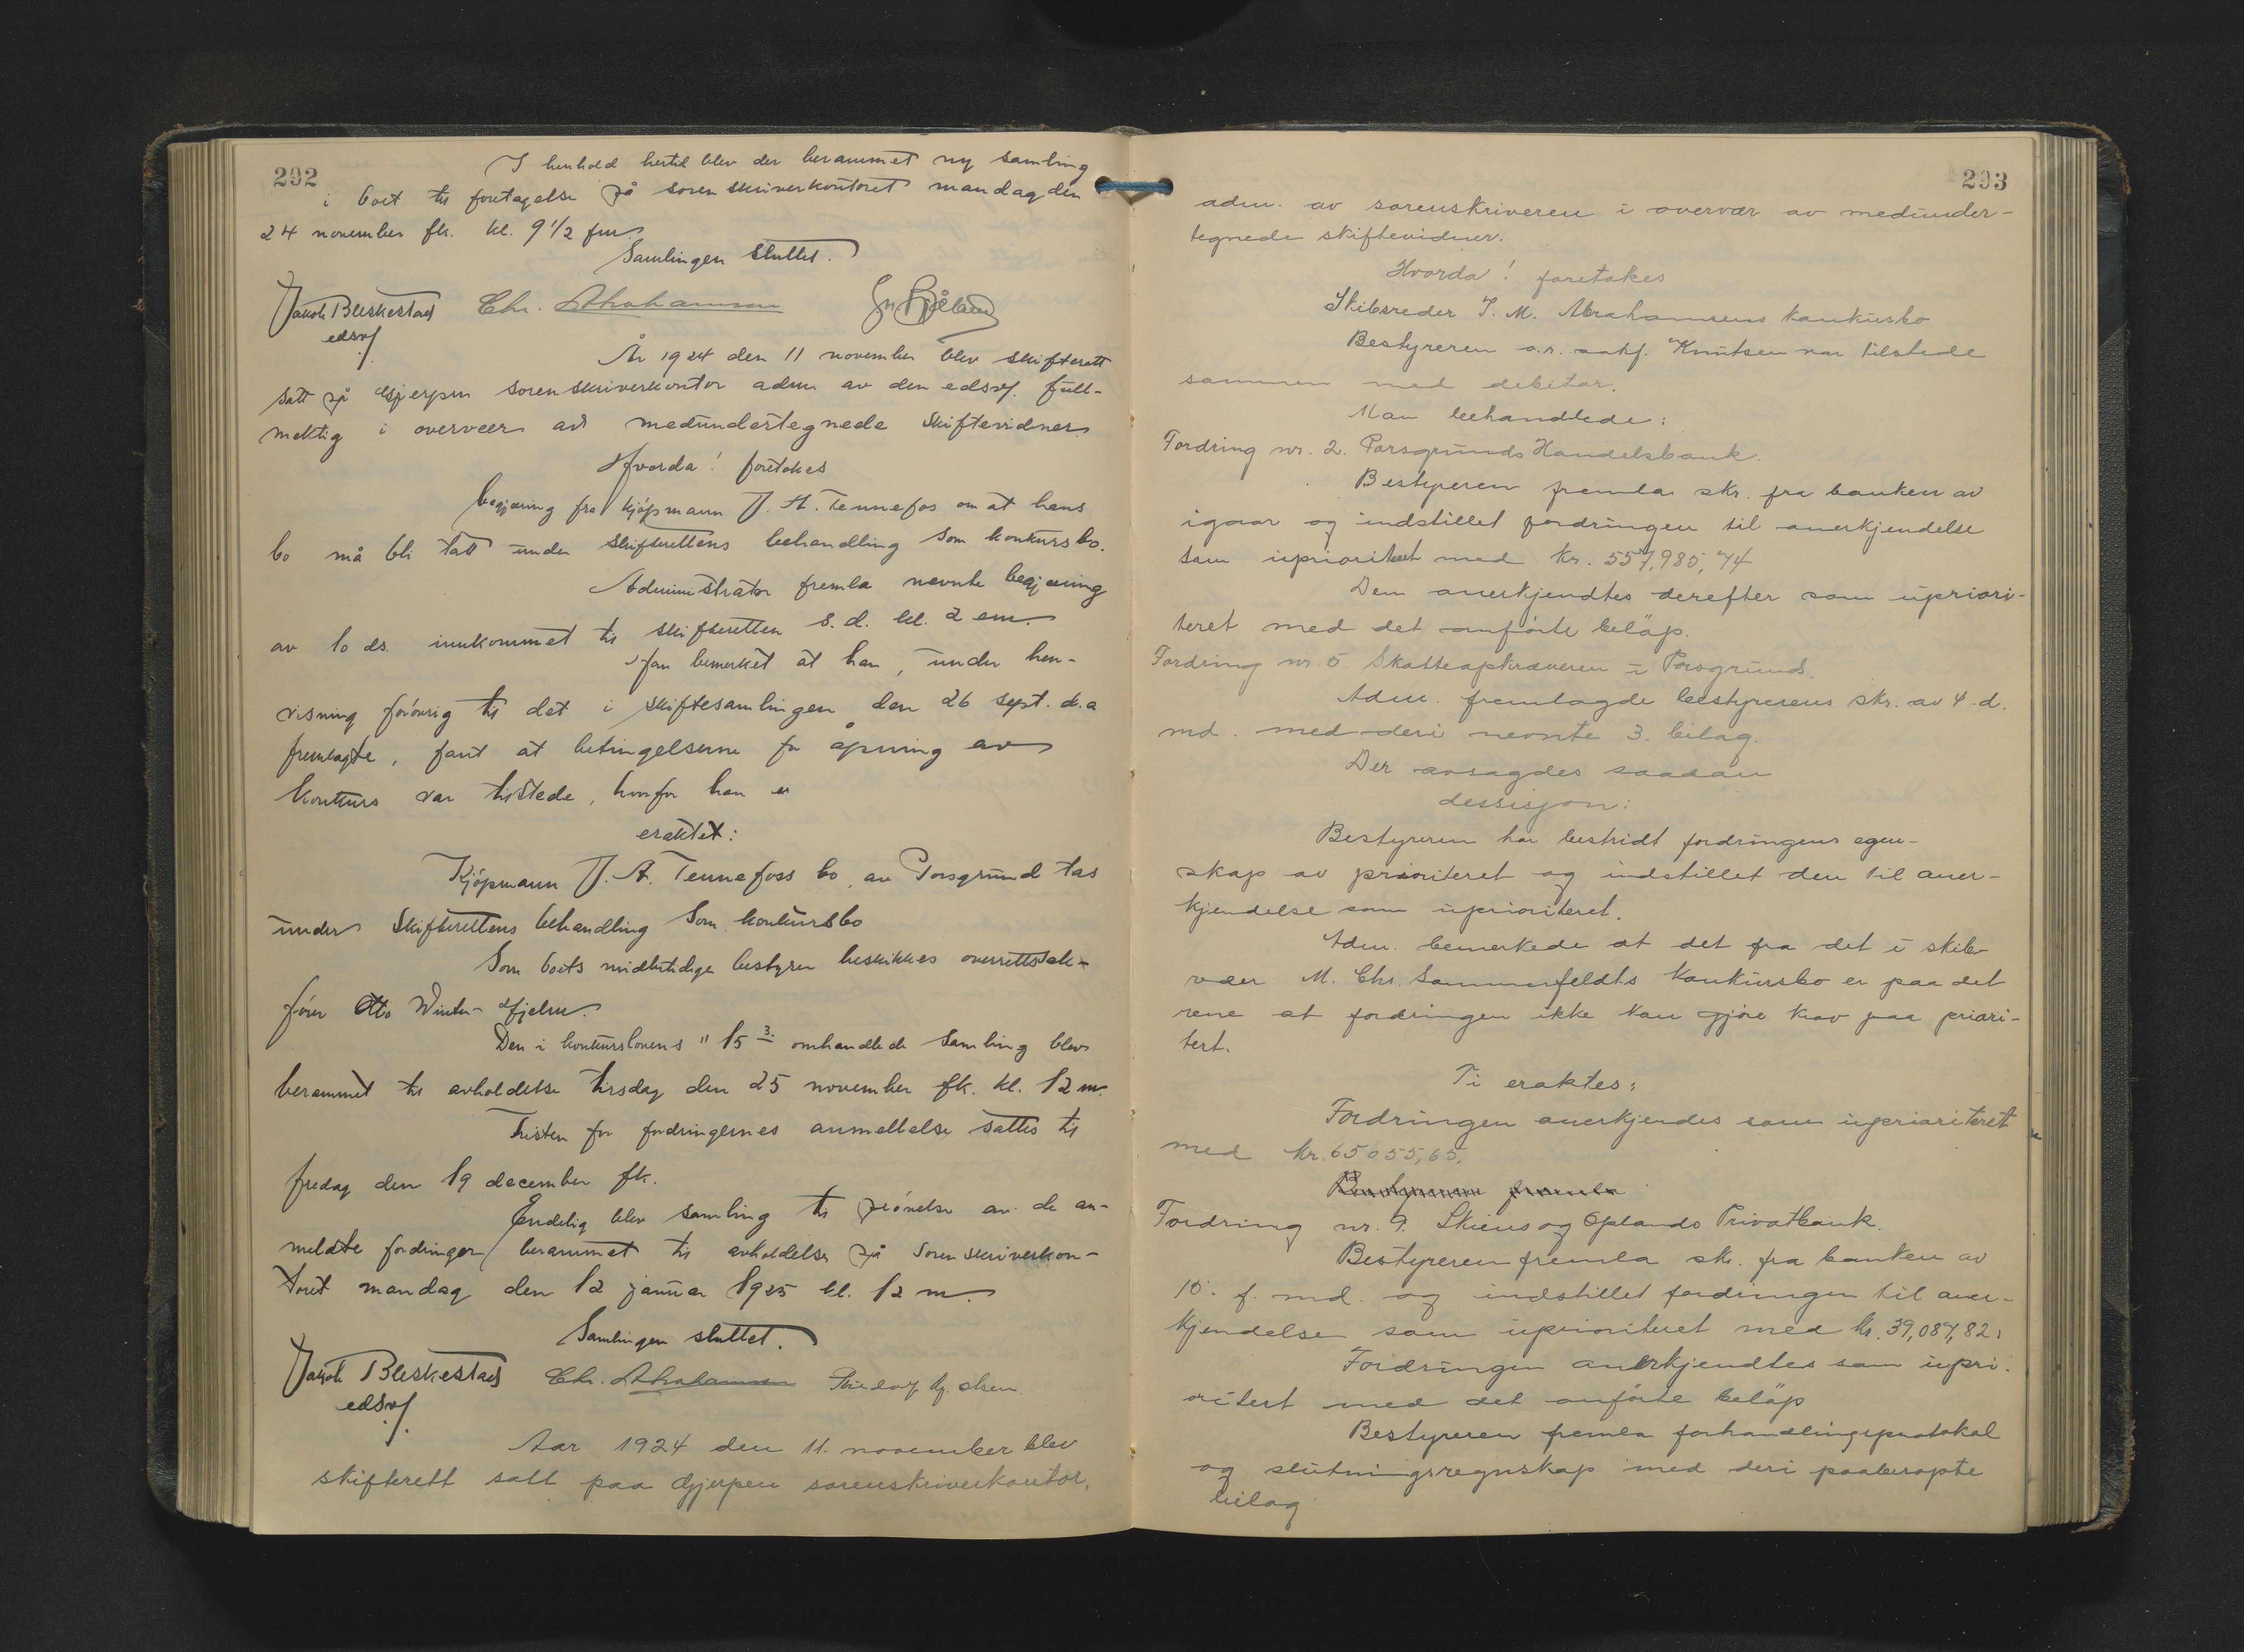 292
I henhold hertil blev der berammet ny samling
i boet til foretagelse på sorenskriverkontoret mandag den
24 november fk. kl. 9 1/2 fm.
Samlingen sluttet.
Jakob Bleskestad Chr. Abrahamsen
edsv.
År 1924 den 11 november blev skifterett
satt på Gjerpen sorenskriverkontor adm av den edsv. full-
mektig i overveer av medundertegnede skiftevidner.
Hvorda! foretokes
begjæring fra kjøpmann J. A. Tennefos om at hans
bo må bli tatt under skifterettens behandling som konkursbo.
Administrator fremla nevnte begjæring
av 10 ds. innkommet til skifteretten s.d. kl. 2 em.
Han bemerket at han, under hen-
visning forøvrig til det i skiftesamlingen den 26 sept. d.a
fremlagte, fant at betingelserne for åpning av
konkurs var tilstede, hvorfor han
eraktet:
Kjøpmann J. A. Tennefoss bo, av Porsgrund tas
under skifterettens behandling som konkursbo
Som boets midlertidige bestyrer beskikkes overrettssak-
fører Otto Winter-Hjelm.
Den i konkurslovens § 15 3. omhandlede samling blev
berammet til avholdelse tirsdag den 25 november fk. kl. 12 m.
Fristen for fordringernes anmeldelse sattes til
fredag den 19 december fk.
Endelig blev samling til prøvelse av de an-
meldte fordringer berammet til avholdelse på sorenskriverkon-
toret mandag den 12 januar 1925 kl. 12 m.
Samlingen sluttet.
Jakob Bleskestad Chr. Abrahamsen
edsv.
Aar 1924 den 11. november blev
skifterett satt paa Gjerpen sorenskriverkontor,
293
adm. av sorenskriveren i overvær av medunder-
tegnede skiftevidner.
Hvorda! foretokes
Skibsreder J. M. Abrahamsens konkursbo
Bestyreren o.r. sakf. Knutsen var tilstede
sammen med debitor.
Man behandlede:
Fordring nr. 2. Porsgrunds Handelsbank.
Bestyreren fremla skr. fra banken av
igaar og indstillet fordringen til anerkjendelse
som uprioritert med kr. 557,985,74
Den anerkjendtes derefter som upriori-
teret med det anførte beløp.
Fordring nr. 5. Skatteopkræveren i Porsgrund.
Adm. fremlagde bestyrerens skr. av 4. d.
md. med deri nevnte 3. bilag.
Der avsagdes saadan
dessisjon:
Bestyreren har bestridt fordringens egen-
skap av prioriteret og indstillet den til aner-
kjendelse som uprioriteret.
Adm. bemerkede at det fra det i skibs-
M. Chr. Sommerfeldts konkursbo er paa det
rene at fordringen ikke kan gjøre krav paa priori-
tert.
Ti eraktes:
Fordringen anerkjendes som uprioriteret
med kr. 65055,65.
Bestyreren fremla
Fordring nr. 9. Skiens og Oplands Privatbank.
Bestyreren fremla skr. fra banken av
15. f. md. og indstillet fordringen til aner-
kjendelse som uprioriteret med kr. 39,087,82.
Fordringen anerkjendtes som upri-
oritert med det anførte beløp
Bestyreren fremla forhandlingsprotokol
og slutningsregnskap med deri paaberopte
bilag